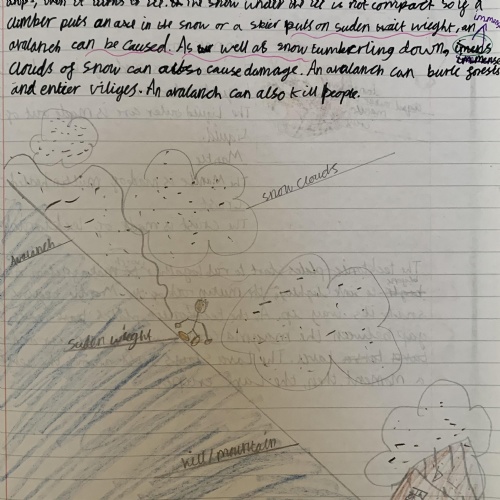 it turns to ice. If the snow under the ice is not compact so if a
climber puts an axe in the snow or a skier puts on suden wait wieght, an
avalanch can be caused. As well at snow tumberling down,
clouds of snow can also cause damage. An avalanch can burie forests
immense
and entier viliges. An avalanch can also kill people.
snow clouds
avalanch
suden wieght
hill/mountain